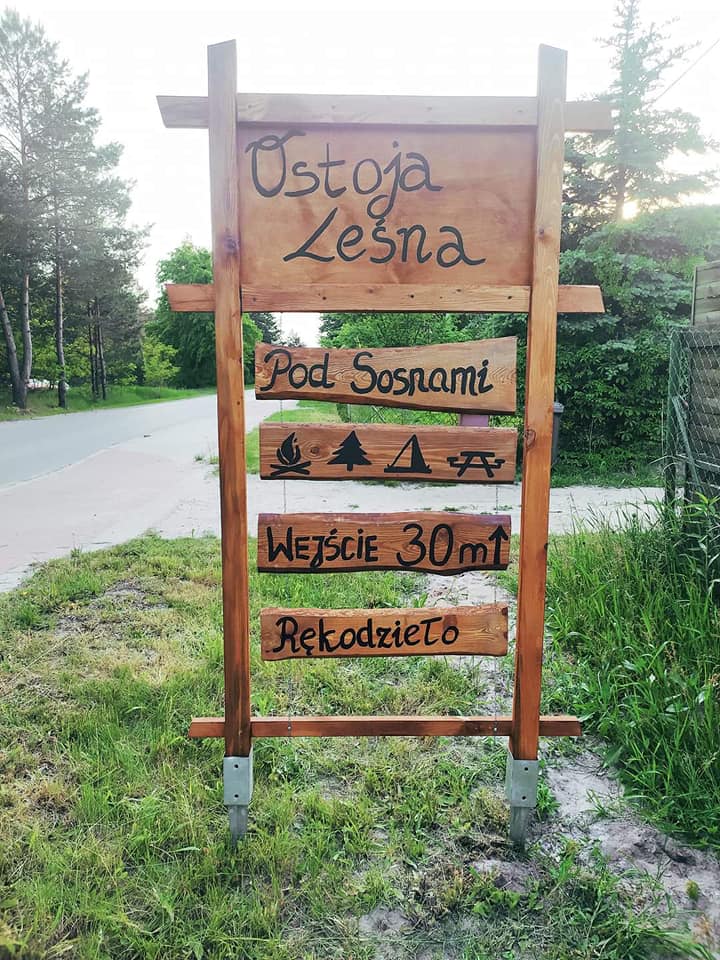 Ostoja
Leśna
Pod Sosnami
WEJŚCIE 30m↑
Rękodzieło